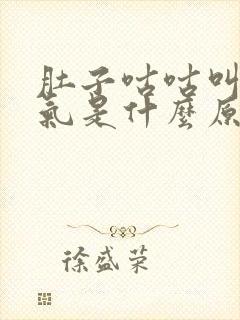 肚子咕咕叫
氣是什麼原
徐盛荣